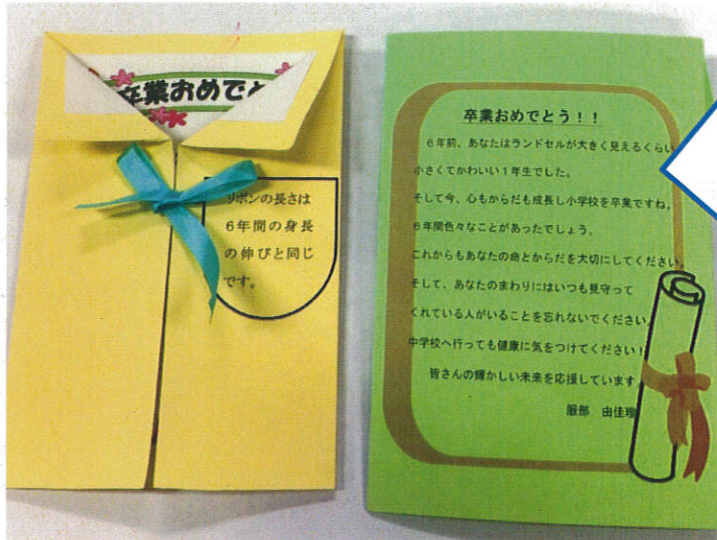 卒業おめでと
リボンの長さは
6年間の身長
の伸びと同じ
です。
卒業おめでとう！！
6年前、あなたはランドセルが大きく見えるくらい
小さくてかわいい1年生でした。
そして今、心もからだも成長し小学校を卒業ですね。
6年間色々なことがあったでしょう。
これからもあなたの命とからだを大切にしてください。
そして、あなたのまわりにはいつも見守って
くれている人がいることを忘れないでください。
中学校へ行っても健康に気をつけてください！
皆さんの輝かしい未来を応援しています
服部　由佳理